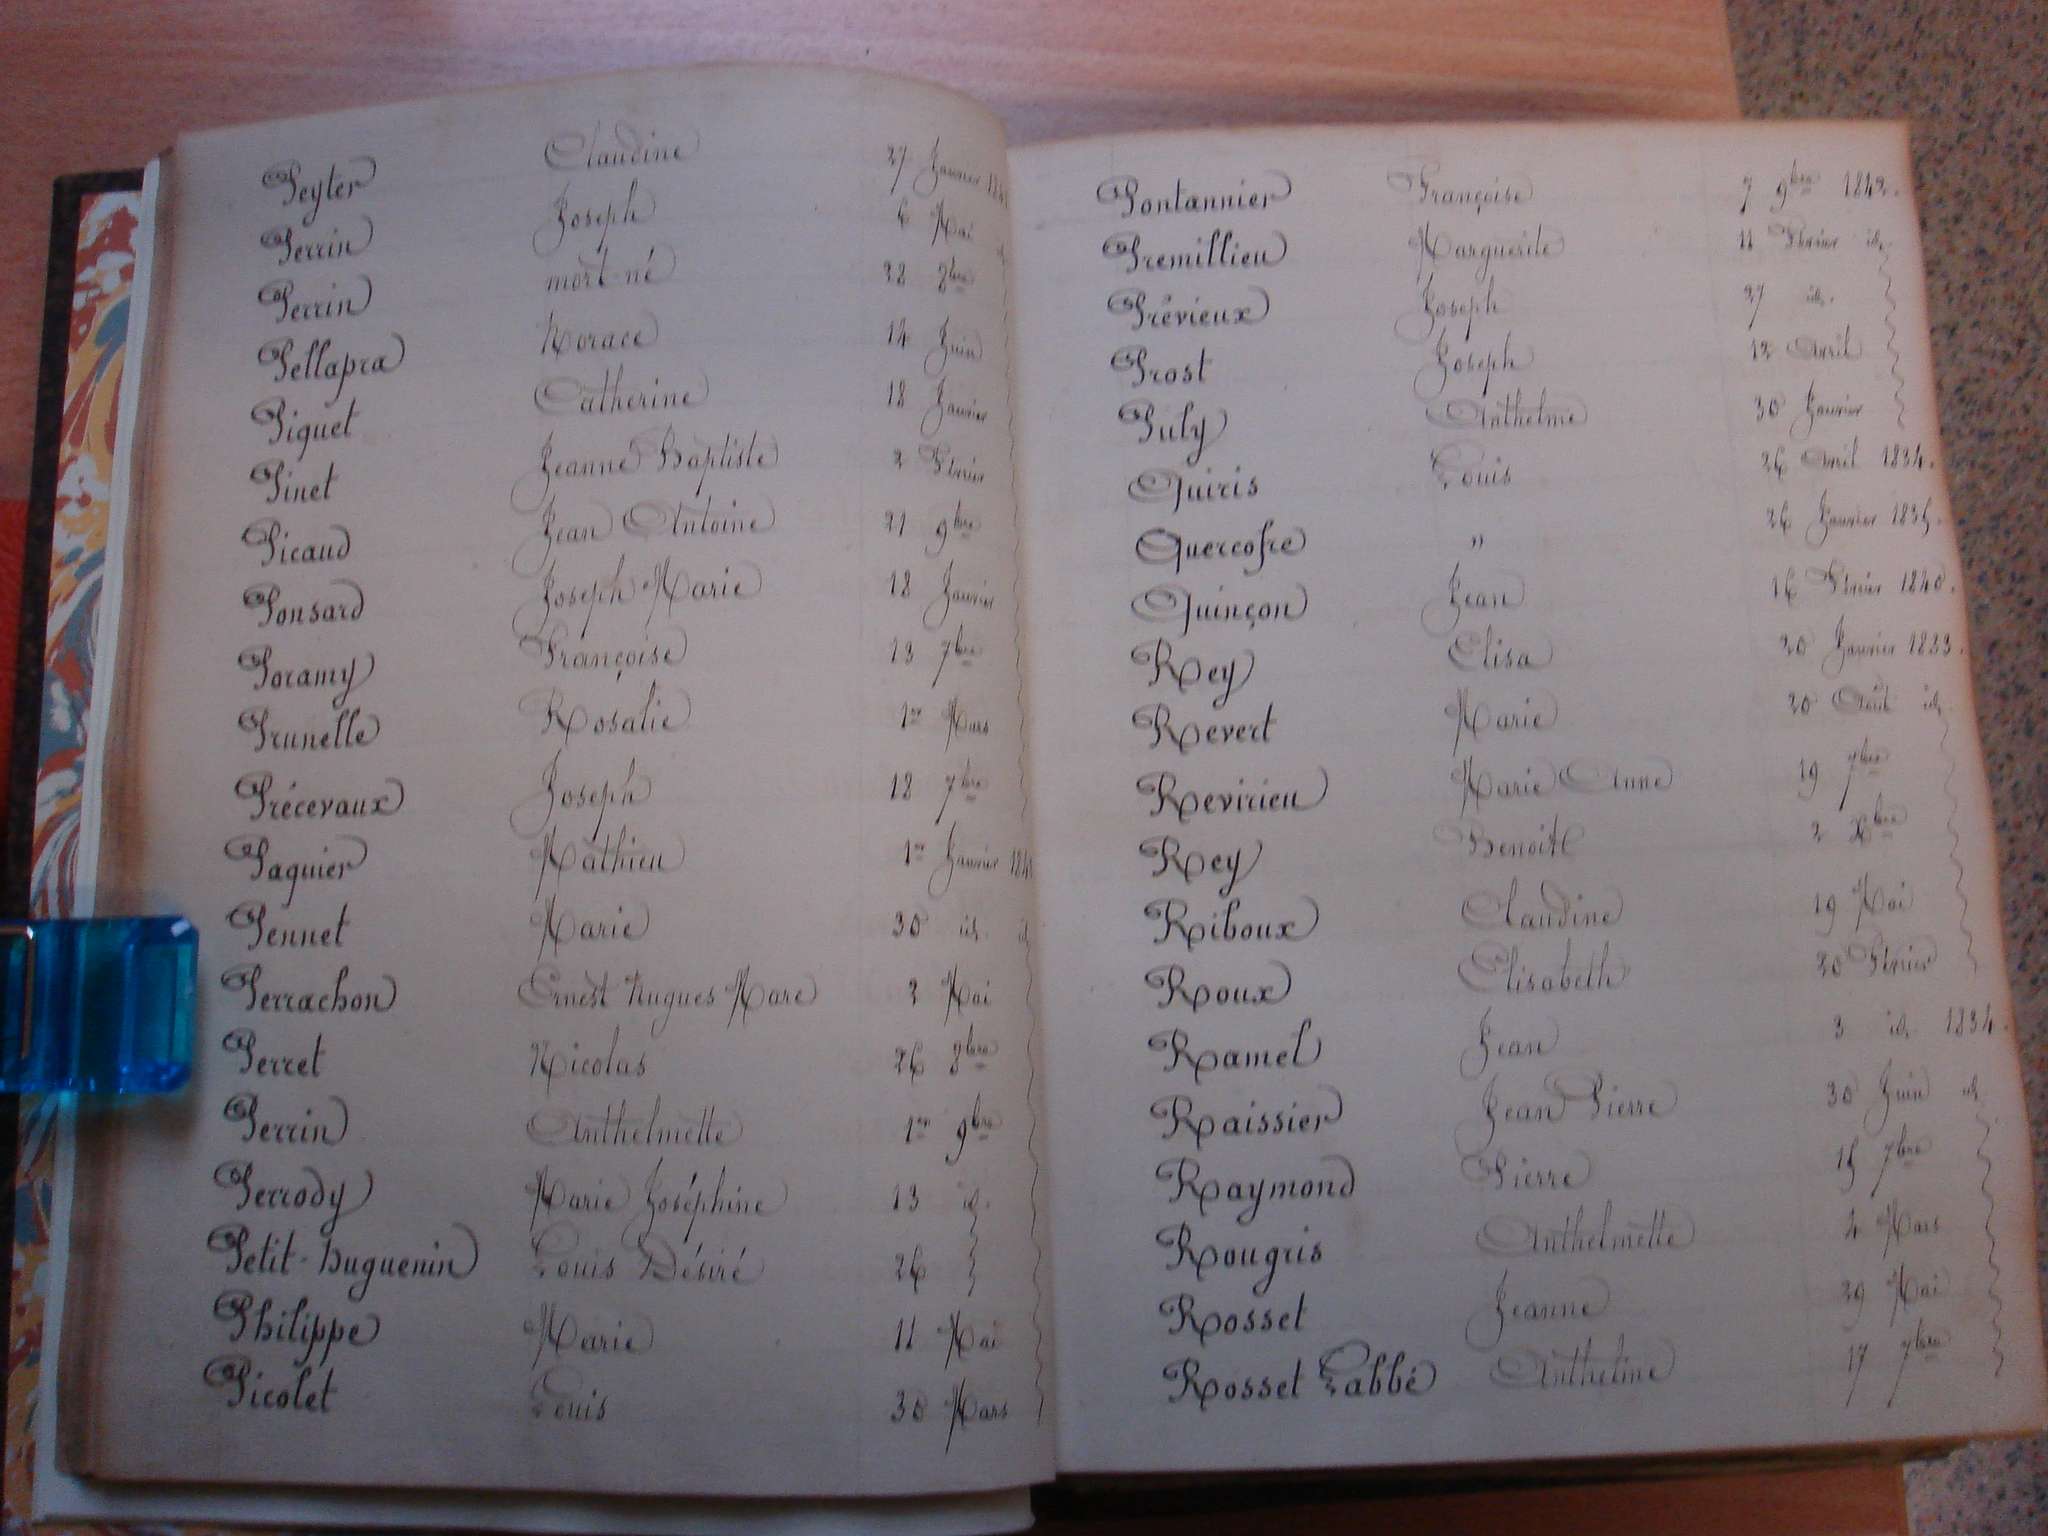 Peyter Claudine 27 Janvier 1841
Perrin Joseph 6 Mai id
Perrin mort né 28 8bre
Pellapra Horace 14 Juin
Piquet Catherine 18 Janvier
Pinet Jeanne Baptiste 2 Février
Picaud Jean Antoine 21 9bre
Ponsard Joseph Marie 18 Janvier
Poramy Françoise 13 7bre
Prunelle Rosalie 1er Mars
Précevaux Joseph 18 7bre
Paquier Mathieu 1er Janvier
Pennet Marie 30 id. id
Perrachon Ernest Hugues Marc 2 Mai
Perret Nicolas 26 8bre
Perrin Anthelmette 1er 9bre
Perrody Marie Joséphine 13 id.
Petit-Huguenin Louis Désiré 26
Philippe Marie 11 Mai
Picolet Louis 30 Mars
Pontannier Françoise 7 9bre 1842.
Premillieu Marguerite 11 Février id.
Prévieux Joseph 27 id.
Prost Joseph 12 Avril
Puly Anthelme 30 Janvier
Quiris Louis 26 Avril 1834.
Quercofre " 26 Janvier 1835.
Quinçon Jean 16 Février 1840.
Rey Elisa 20 Janvier 1833.
Revert Marie 20 Août id.
Revirieu Marie Anne 19 7bre
Rey Benoit 2 Xbre
Riboux Claudine 19 Mai
Roux Elisabeth 20 Février
Ramel Jean 3 id. 1834.
Raissier Jean Pierre 30 Juin id.
Raymond Pierre 15 7bre
Rougris Anthelmette 4 Mars
Rosset Jeanne 29 Mai
Rosset Labbé Anthelme 17 7bre